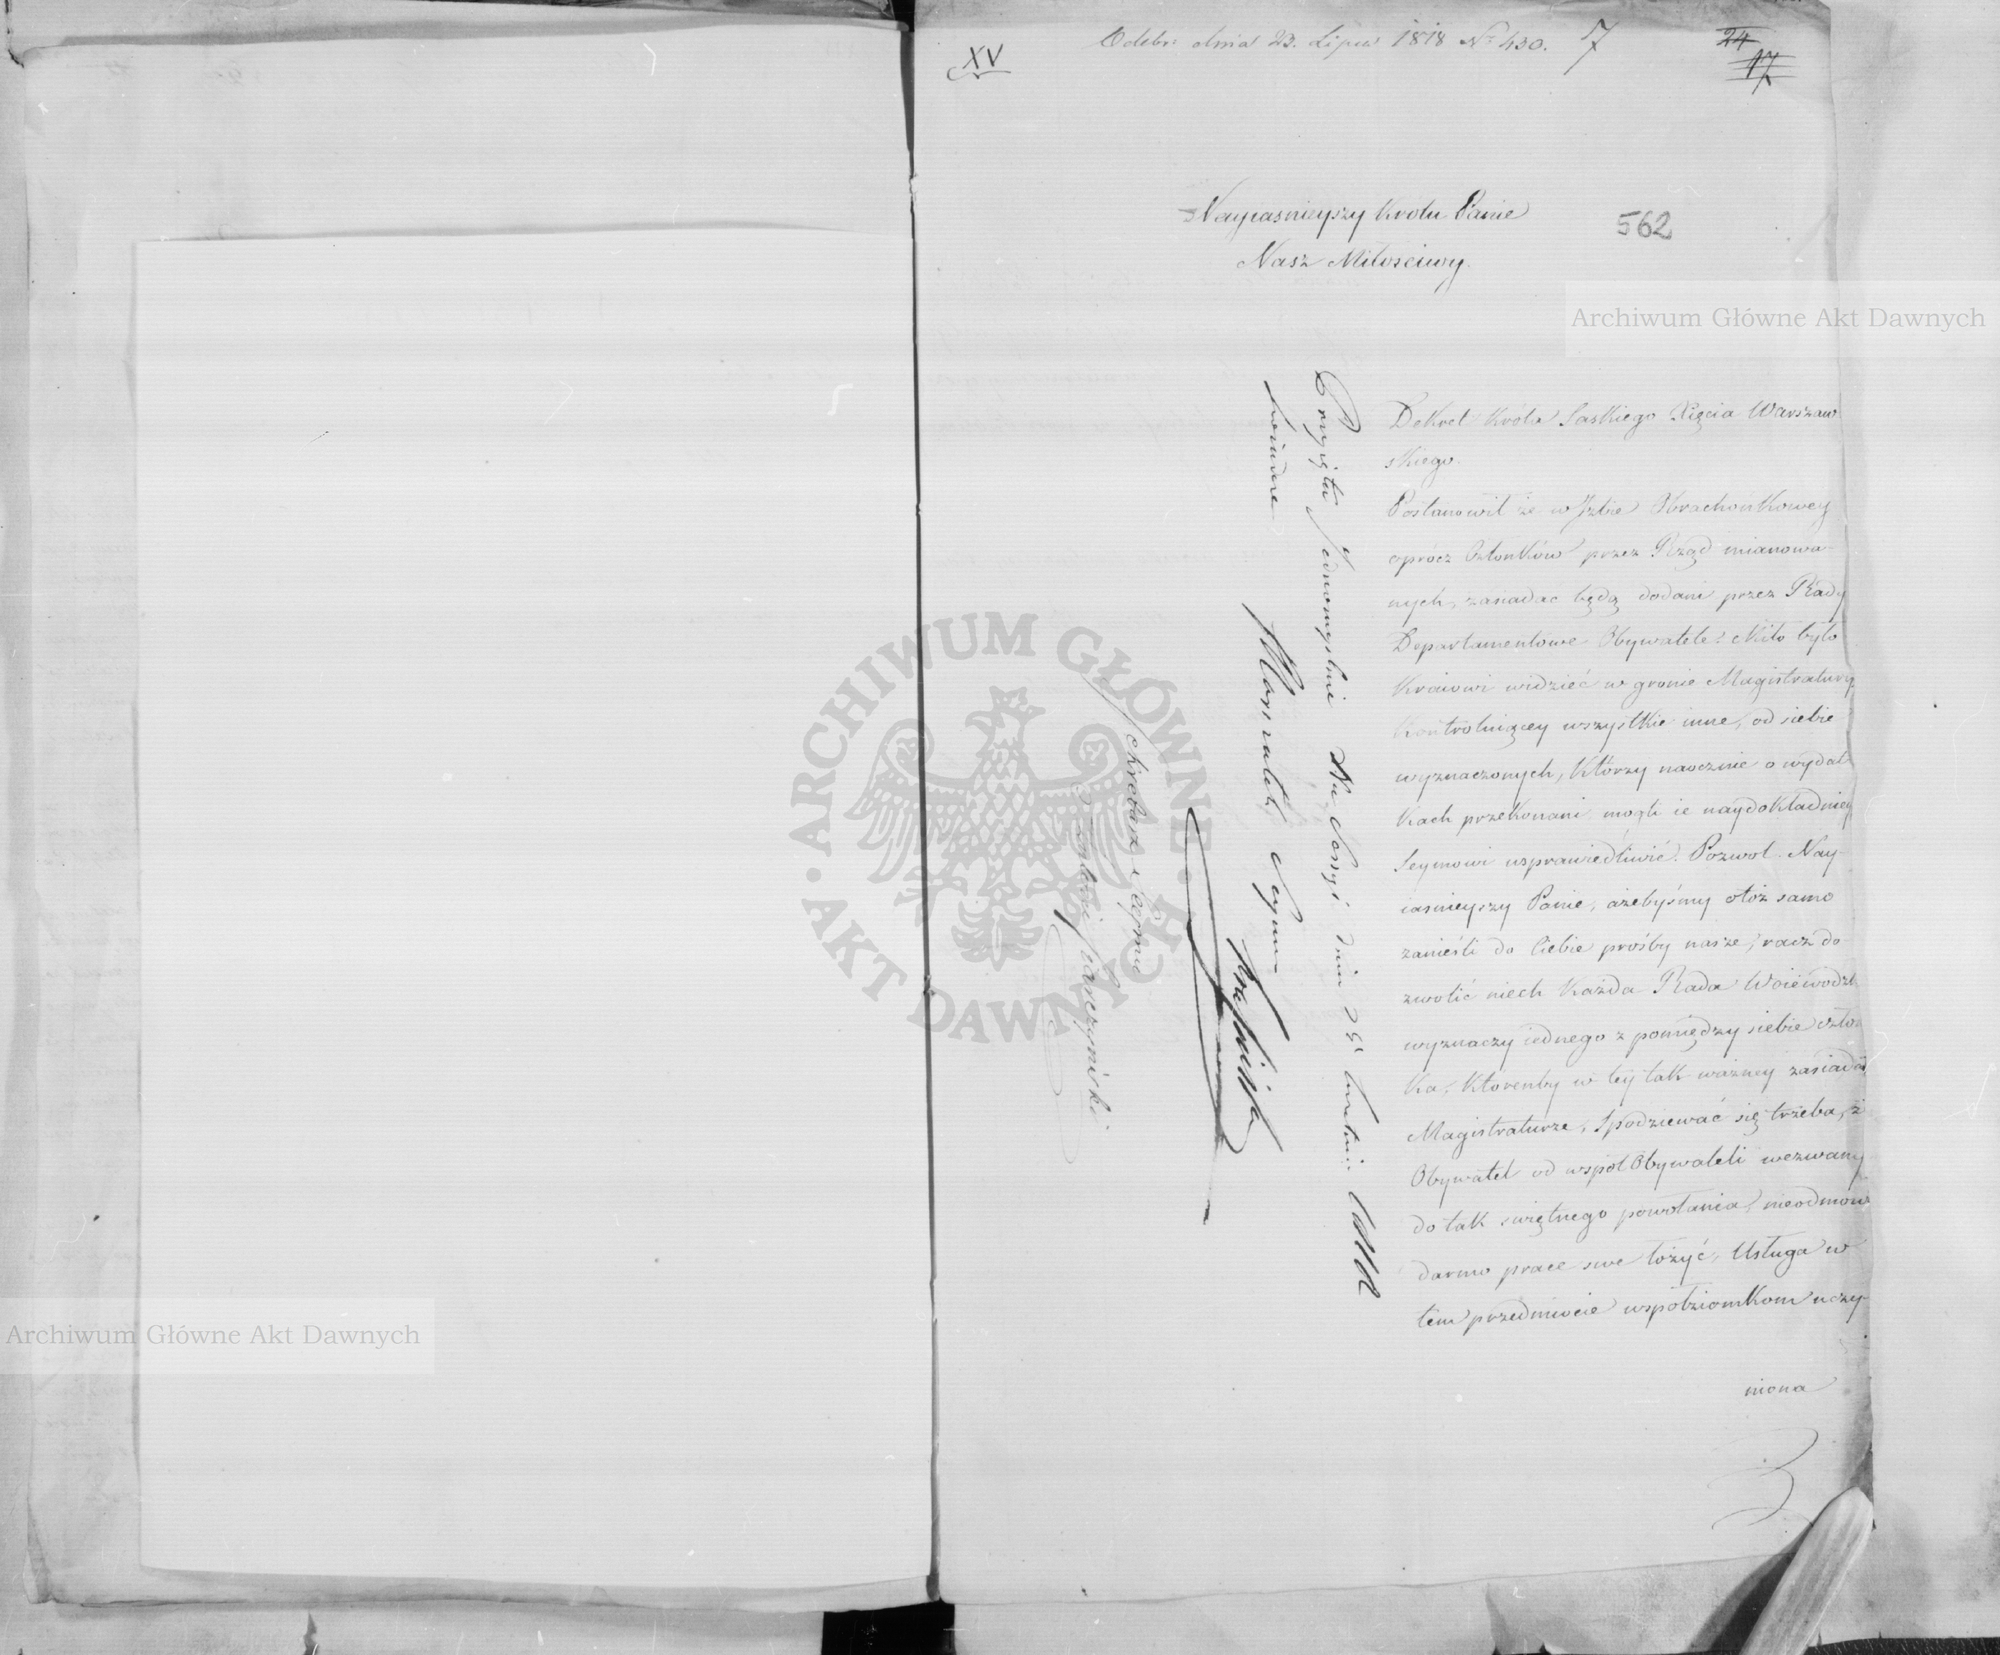 XV
Odebr: dnia 23. Lipca 1818 No 430. 7
24
17
Nayiasnieyszy Krolu Panie
Nasz Miłościwy.
562
Archiwum Główne Akt Dawnych
Dekret Króla Saskiego Xięcia Warszaw
skiego.
Postanowił że w Izbie Obrachonkowey
oprócz Członków przez Rząd mianowa-
nych, zasiadac będą dodani przez Rady
Departamentowe Obywatele: Miło było
Kraiowi widzieć w gronie Magistratury
Kontroluiącey wszystkie inne, od siebie
wyznaczonych, Którzy naocznie o wydat
Kach przekonani mogli ie naydokładniey
Seymowi usprawiedliwić. Pozwol Nay-
iasnieyszy Panie, ażebyśmy otóż samo
zanieśli do Ciebie prośby nasze, racz do-
zwolić niech Każda Rada Woiewodzk
wyznaczy iednego z pomiędzy siebie człon
Ka, Ktorenby w tey tak ważney zasiadał
Magistraturze, Spodziewać się trzeba, ż
Obywatel od wspoł Obywateli wezwany
do tak swiętnego powołania, nieodmowi
darmo prace swe łożyć, Usługa w
tem przedmiocie wspołziomkom uczy-
niona
Przyięta Jednomyslnie Na Sessyi dnia 25 Kwietnia 1818
Marszałek Seymu
Krasiński
Sekretarz Seymu
ARCHIWUM GŁÓWNE AKT DAWNYCH
Archiwum Główne Akt Dawnych